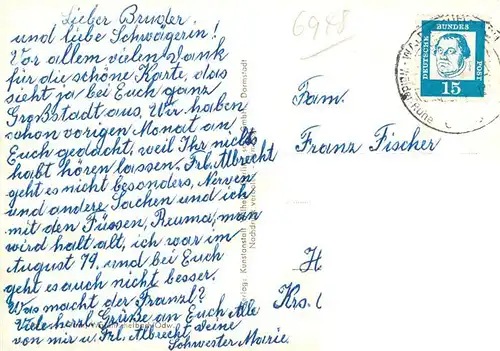 Lieber Bruder
und liebe Schwägerin!
Vor allem vielen Dank
für die schöne Karte, das
sieht ja bei Euch ganz
Großstadt aus. Wir haben
schon vorigen Monat an
Euch gedacht, weil Ihr nichts
habt hören lassen. Frl. Albrecht
geht es nicht besonders, Nerven
und andere Sachen und ich
mit den Füssen, Reuma, man
wird halt alt, ich war im
August 79, und bei Euch
geht es auch nicht besser.
Was macht der Franzl?
Viele herzl. Grüße an Euch Alle
von mir u. Frl. Albrecht, Deine
Schwester Marie.
6948
DEUTSCHE BUNDES POST
15
Fam.
Franz Fischer
H
Krs. (
Kunstanstalt
Darmstadt
Nachdruck